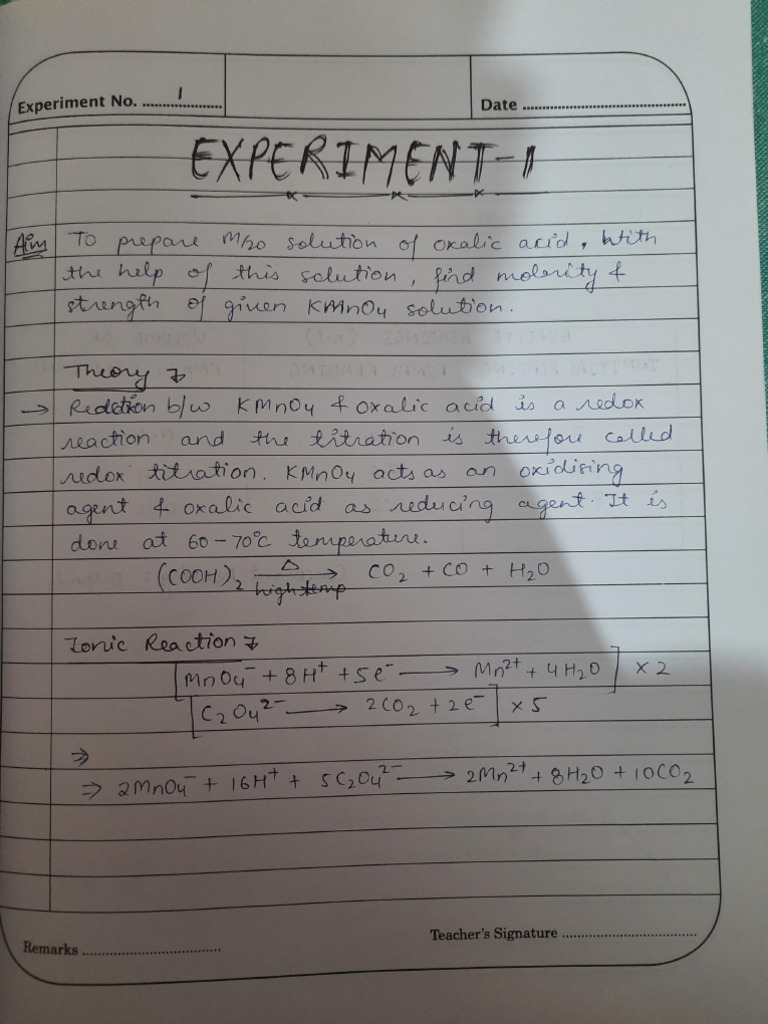 Experiment No. 1
Date
EXPERIMENT-1
Aim To prepare M/20 solution of oxalic acid, With
the help of this solution, find molarity &
strength of given KMnO4 solution.
Theory
→ b/w KMnO4 & oxalic acid is a redox
reaction and the titration is therefore called
redox titration. KMnO4 acts as an oxidising
agent & oxalic acid as reducing agent. It is
done at 60-70°C temperature.
(COOH)₂ —Δ→ CO₂ + CO + H₂O
high temp
Ionic Reaction
[MnO₄⁻ + 8H⁺ + 5e⁻ ⟶ Mn²⁺ + 4H₂O] × 2
[C₂O₄²⁻ ⟶ 2CO₂ + 2e⁻] × 5
⇒
⇒ 2MnO₄⁻ + 16H⁺ + 5C₂O₄²⁻ ⟶ 2Mn²⁺ + 8H₂O + 10CO₂
Teacher's Signature
Remarks